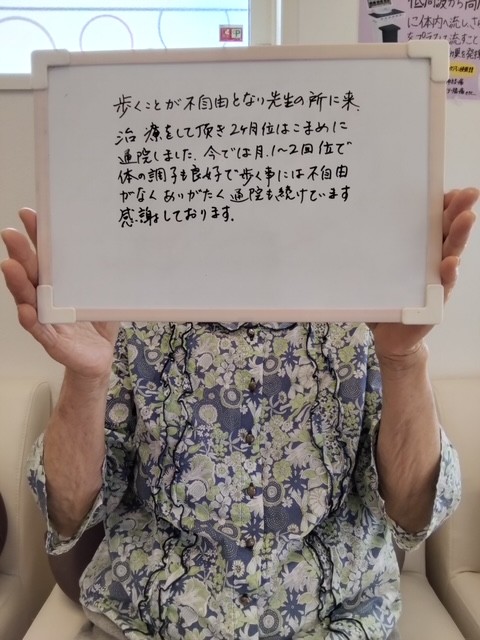 歩くことが不自由となり先生の所に来、
治療をして頂き2ヶ月位はこまめに
通院しました。今では月.1〜2回位で
体の調子も良好で歩く事には不自由
がなくありがたく通院も続けています
感謝しております。
低周波から高周
に体内へ流し、さ